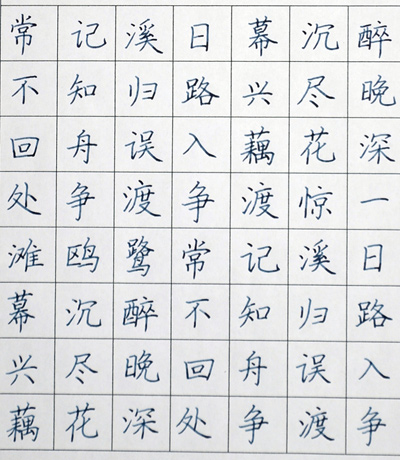 常记溪日幕沉醉
不知归路兴尽晚
回舟误入藕花深
处争渡争渡惊一
滩鸥鹭常记溪日
幕沉醉不知归路
兴尽晚回舟误入
藕花深处争渡争